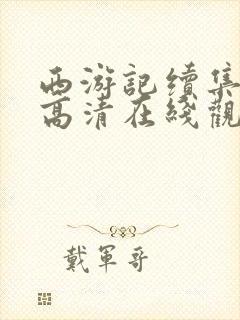 西游記续集
高清在綫觀
戴軍哥